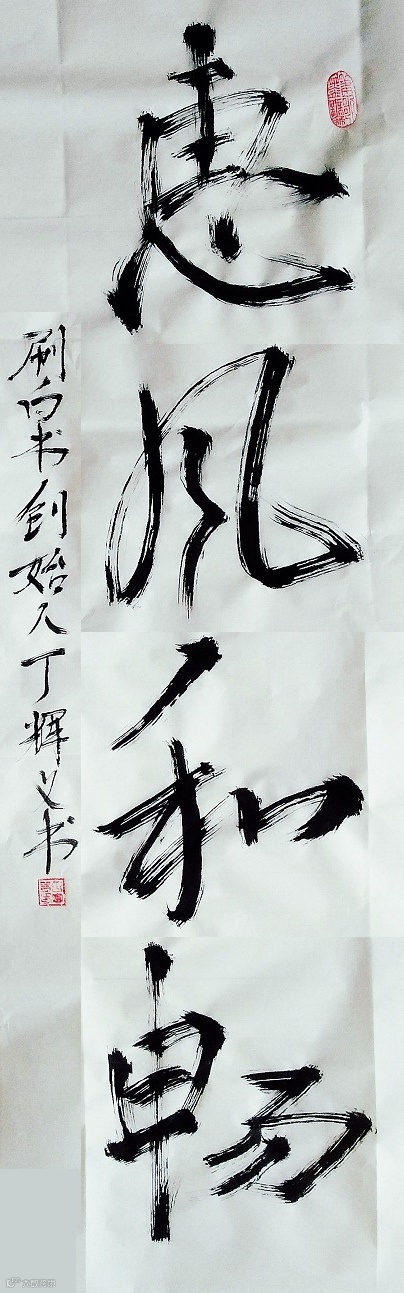 惠风和畅
刷白书创始人丁辉义书